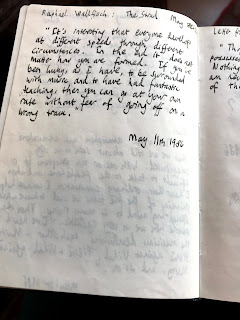 Raphael Wallfisch : The Strad May 86
"It's interesting that everyone develops
at different speeds through different
circumstances. In the end it does not
matter how you are formed. If you've
been lucky, as I have, to be surrounded
with music, and to have had fantastic
teaching, then you can go at your own
rate without fear of going off on a
wrong track."
May 11th 1986